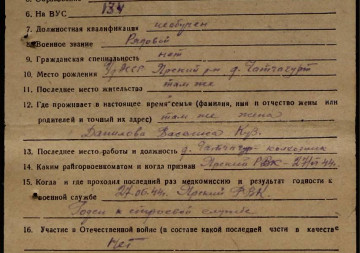 6. На ВУС 134
7. Должностная квалификация необучен
8. Военное звание Рядовой
9. Гражданская специальность нет
10. Место рождения УАССР Ярский р-н д. Чатчагурт
11. Последнее место жительства там же
12. Где проживает в настоящее время семья (фамилия, имя и отчество жены или
родителей и точный их адрес) там же жена
Данилова Василиса Куз.
13. Последнее место работы и должность колхозник
14. Каким райгорвоенкоматом и когда призван Ярский РВК
15. Когда и где проходил последний раз медкомиссию и результат годности к
военной службе 27.06.44. Ярский РВК.
Годен к строевой службе
16. Участие в Отечественной войне (в составе какой последней части и в качестве
Нет